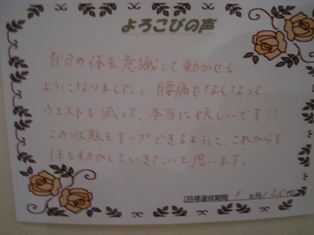 よろこびの声
自分の体を意識して動かせる
ようになりました。腰痛もなくなって、
ウエストも減って、本当に嬉しいです!!
この状態をキープできるように、これからも
体を動かしていきたいと思います。
[目標達成期間 1ヵ月/20代]